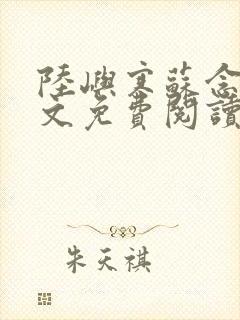 陸嶼寒蘇念
文免費閱讀
朱天祺